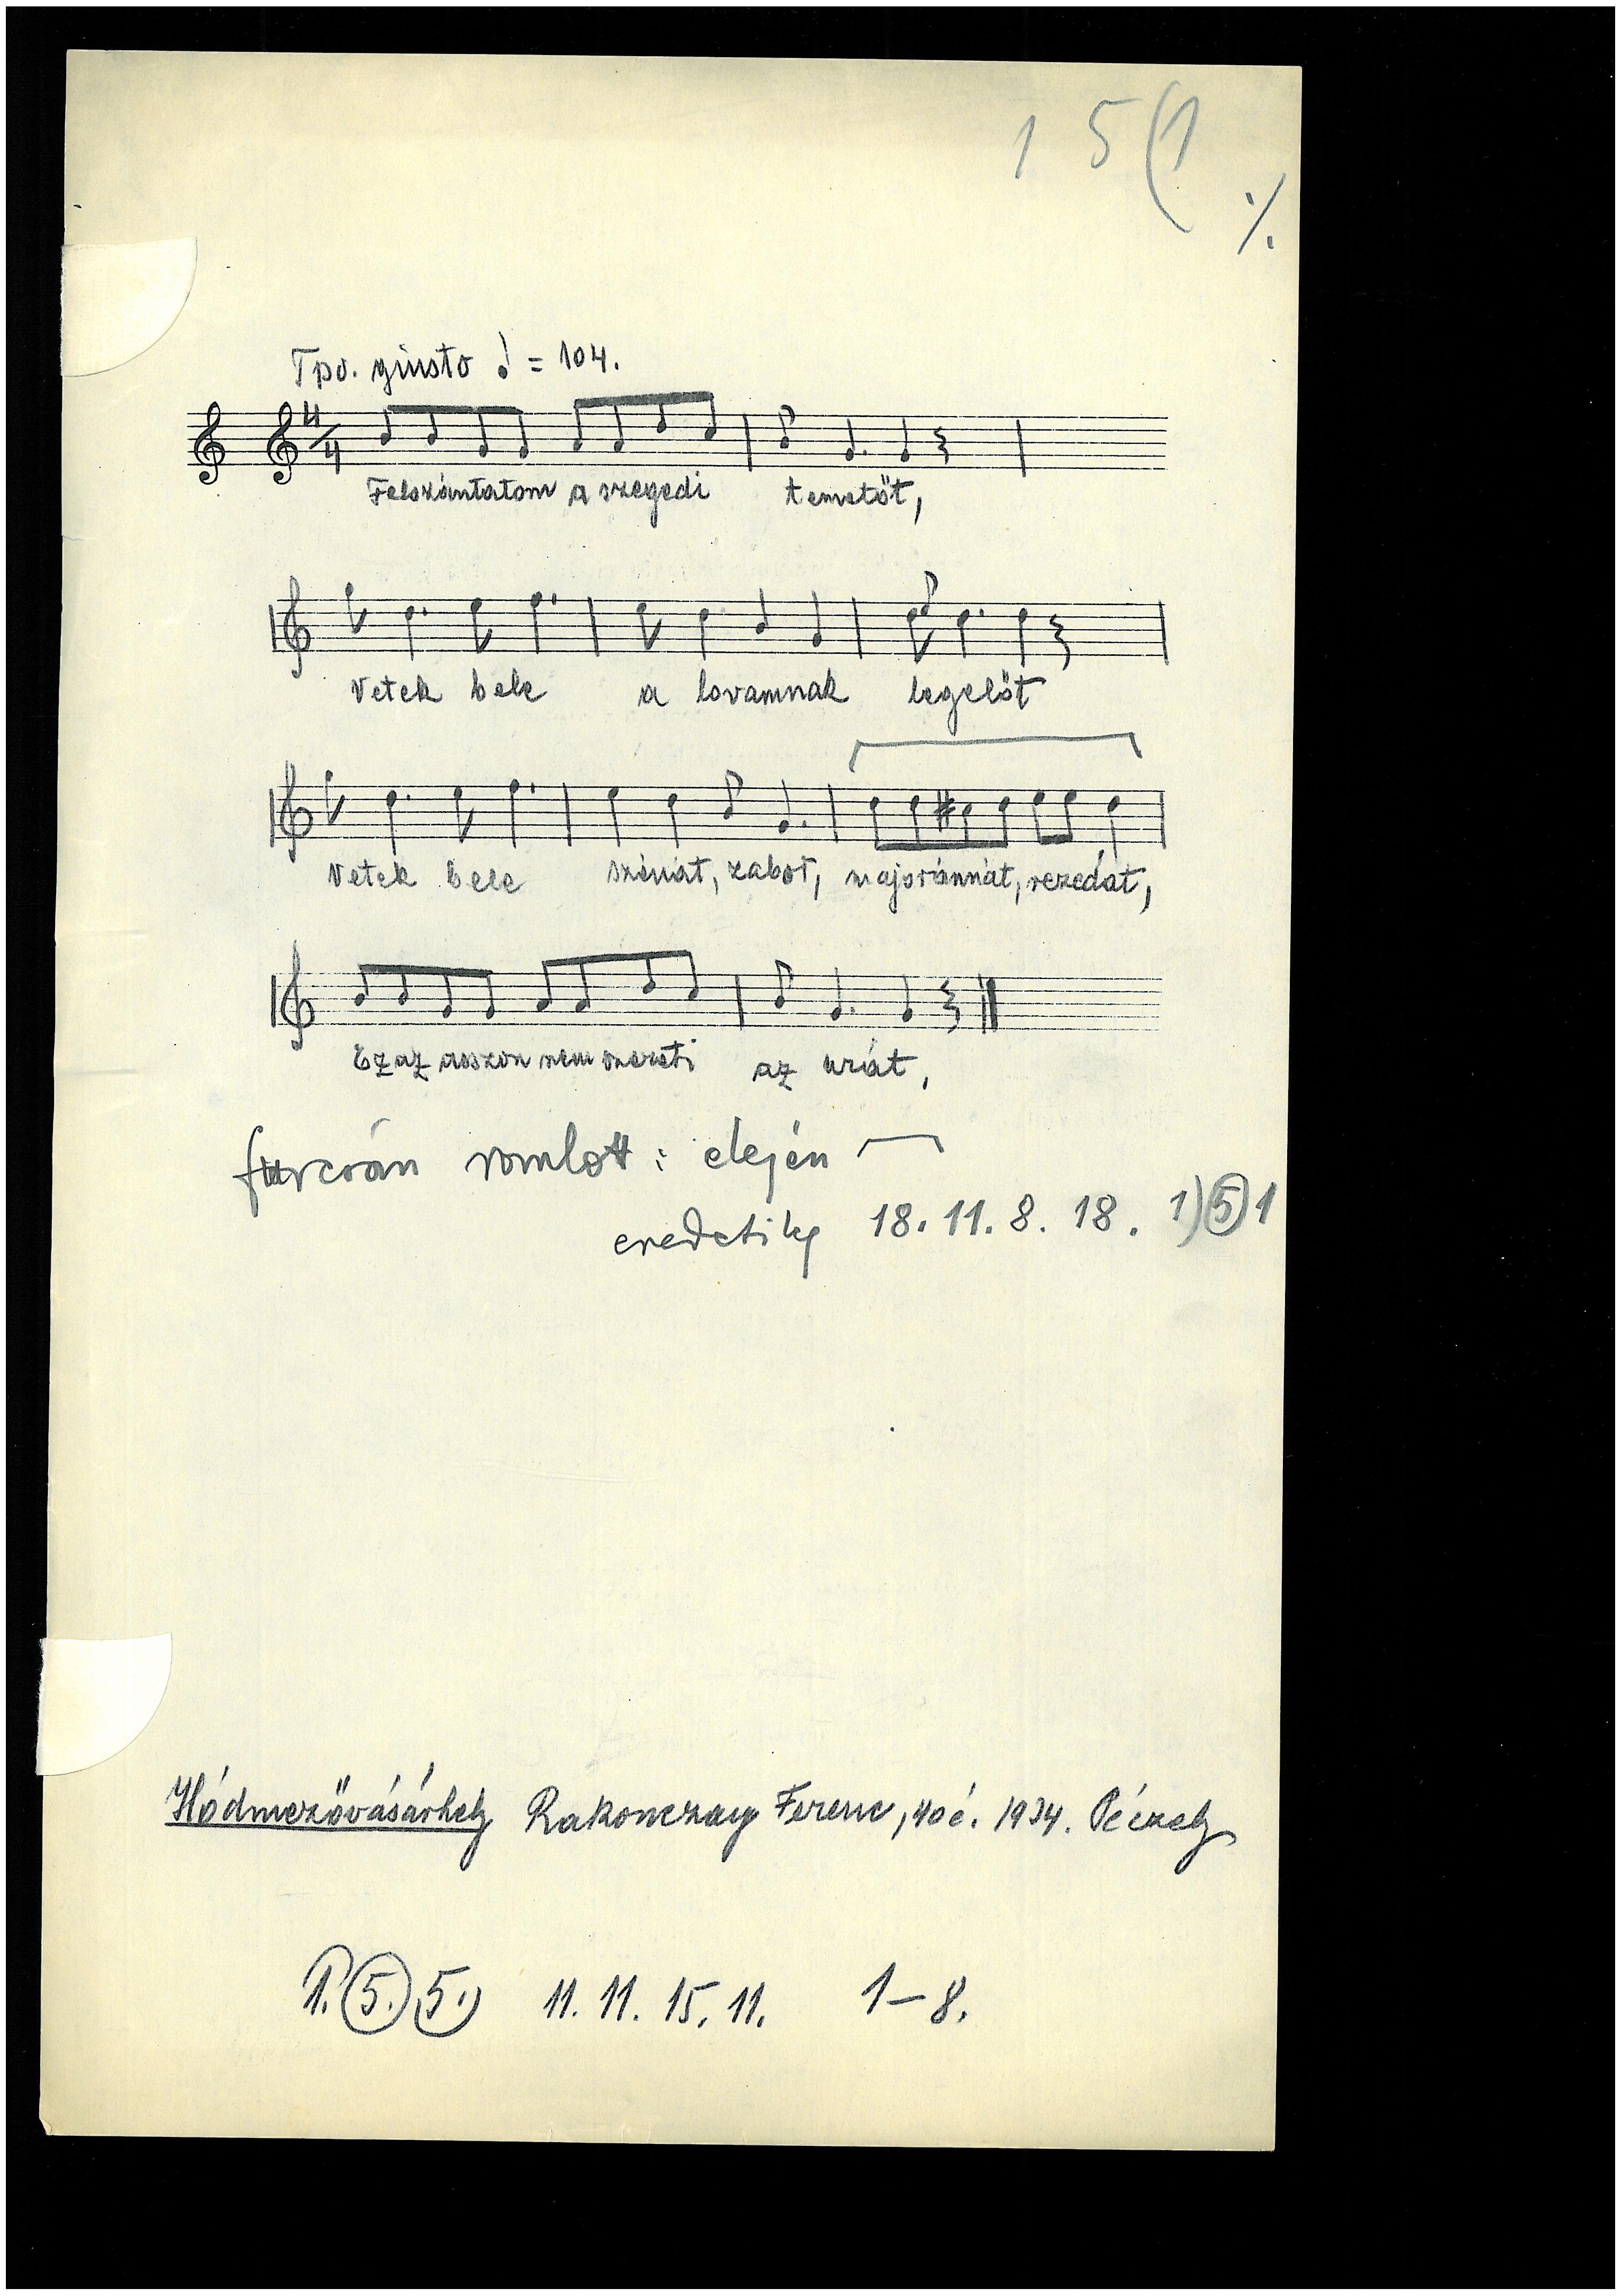 1 5 (1
·/.
Tpo. giusto ♩ = 104.
4/4
Felszántatom a szegedi temetőt,
Vetek bele a lovamnak legelőt
Vetek bele szénát, zabot, majoránnát, rezedát,
Ez az asszon nem szereti az urát,
furcsán romlott: elején
eredetileg 18. 11. 8. 18. 1) (5) 1
Hódmezővásárhely Rakonczay Ferenc, 40 é. 1934. Péczely
1. (5.) 5.) 11. 11. 15. 11. 1–8.